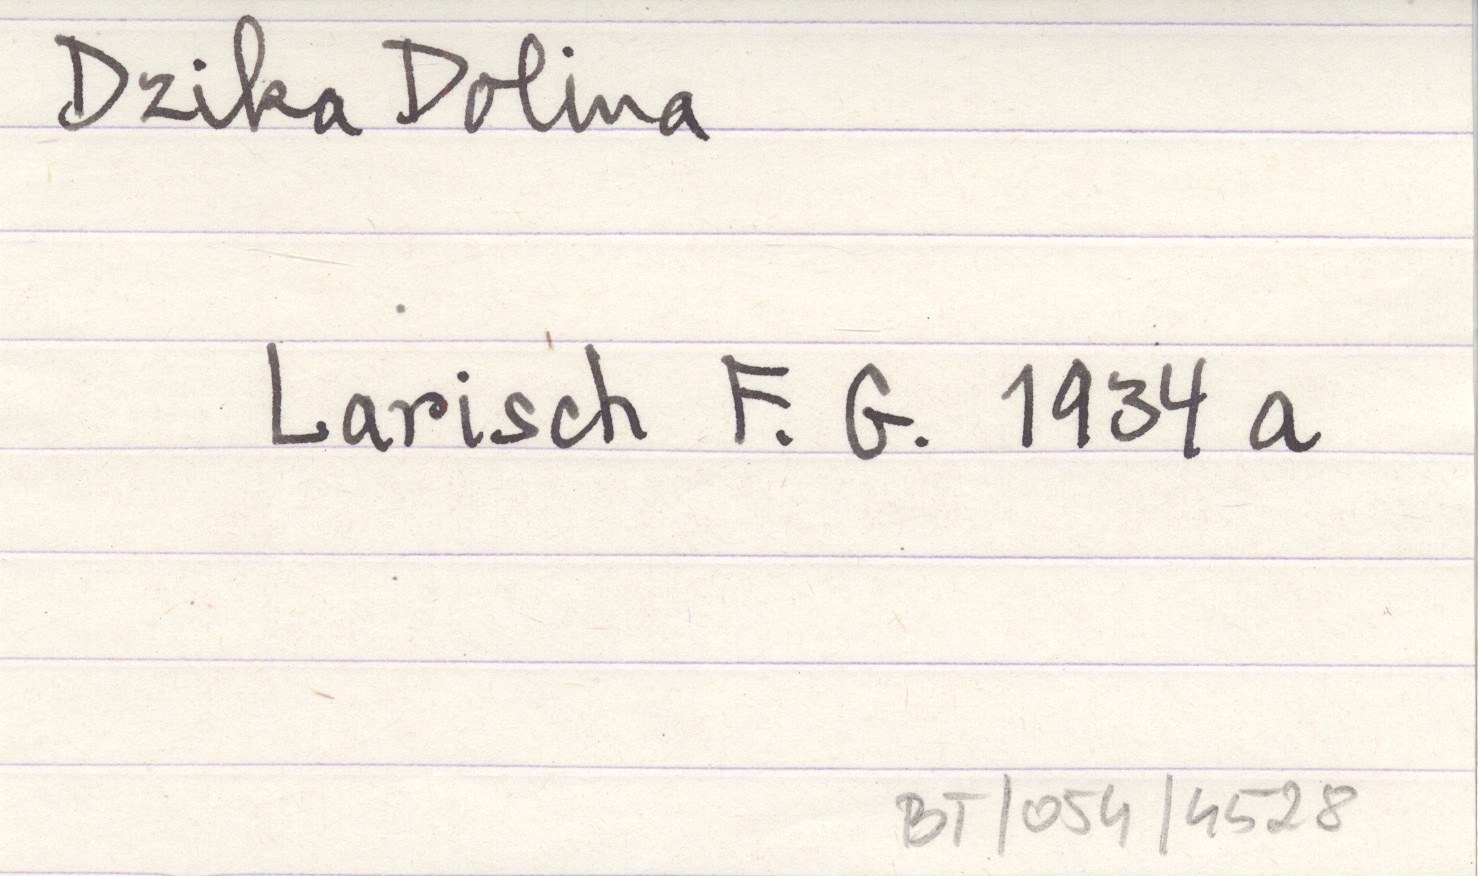 Dzika Dolina
Larisch F. G. 1934 a
BT/054/4528